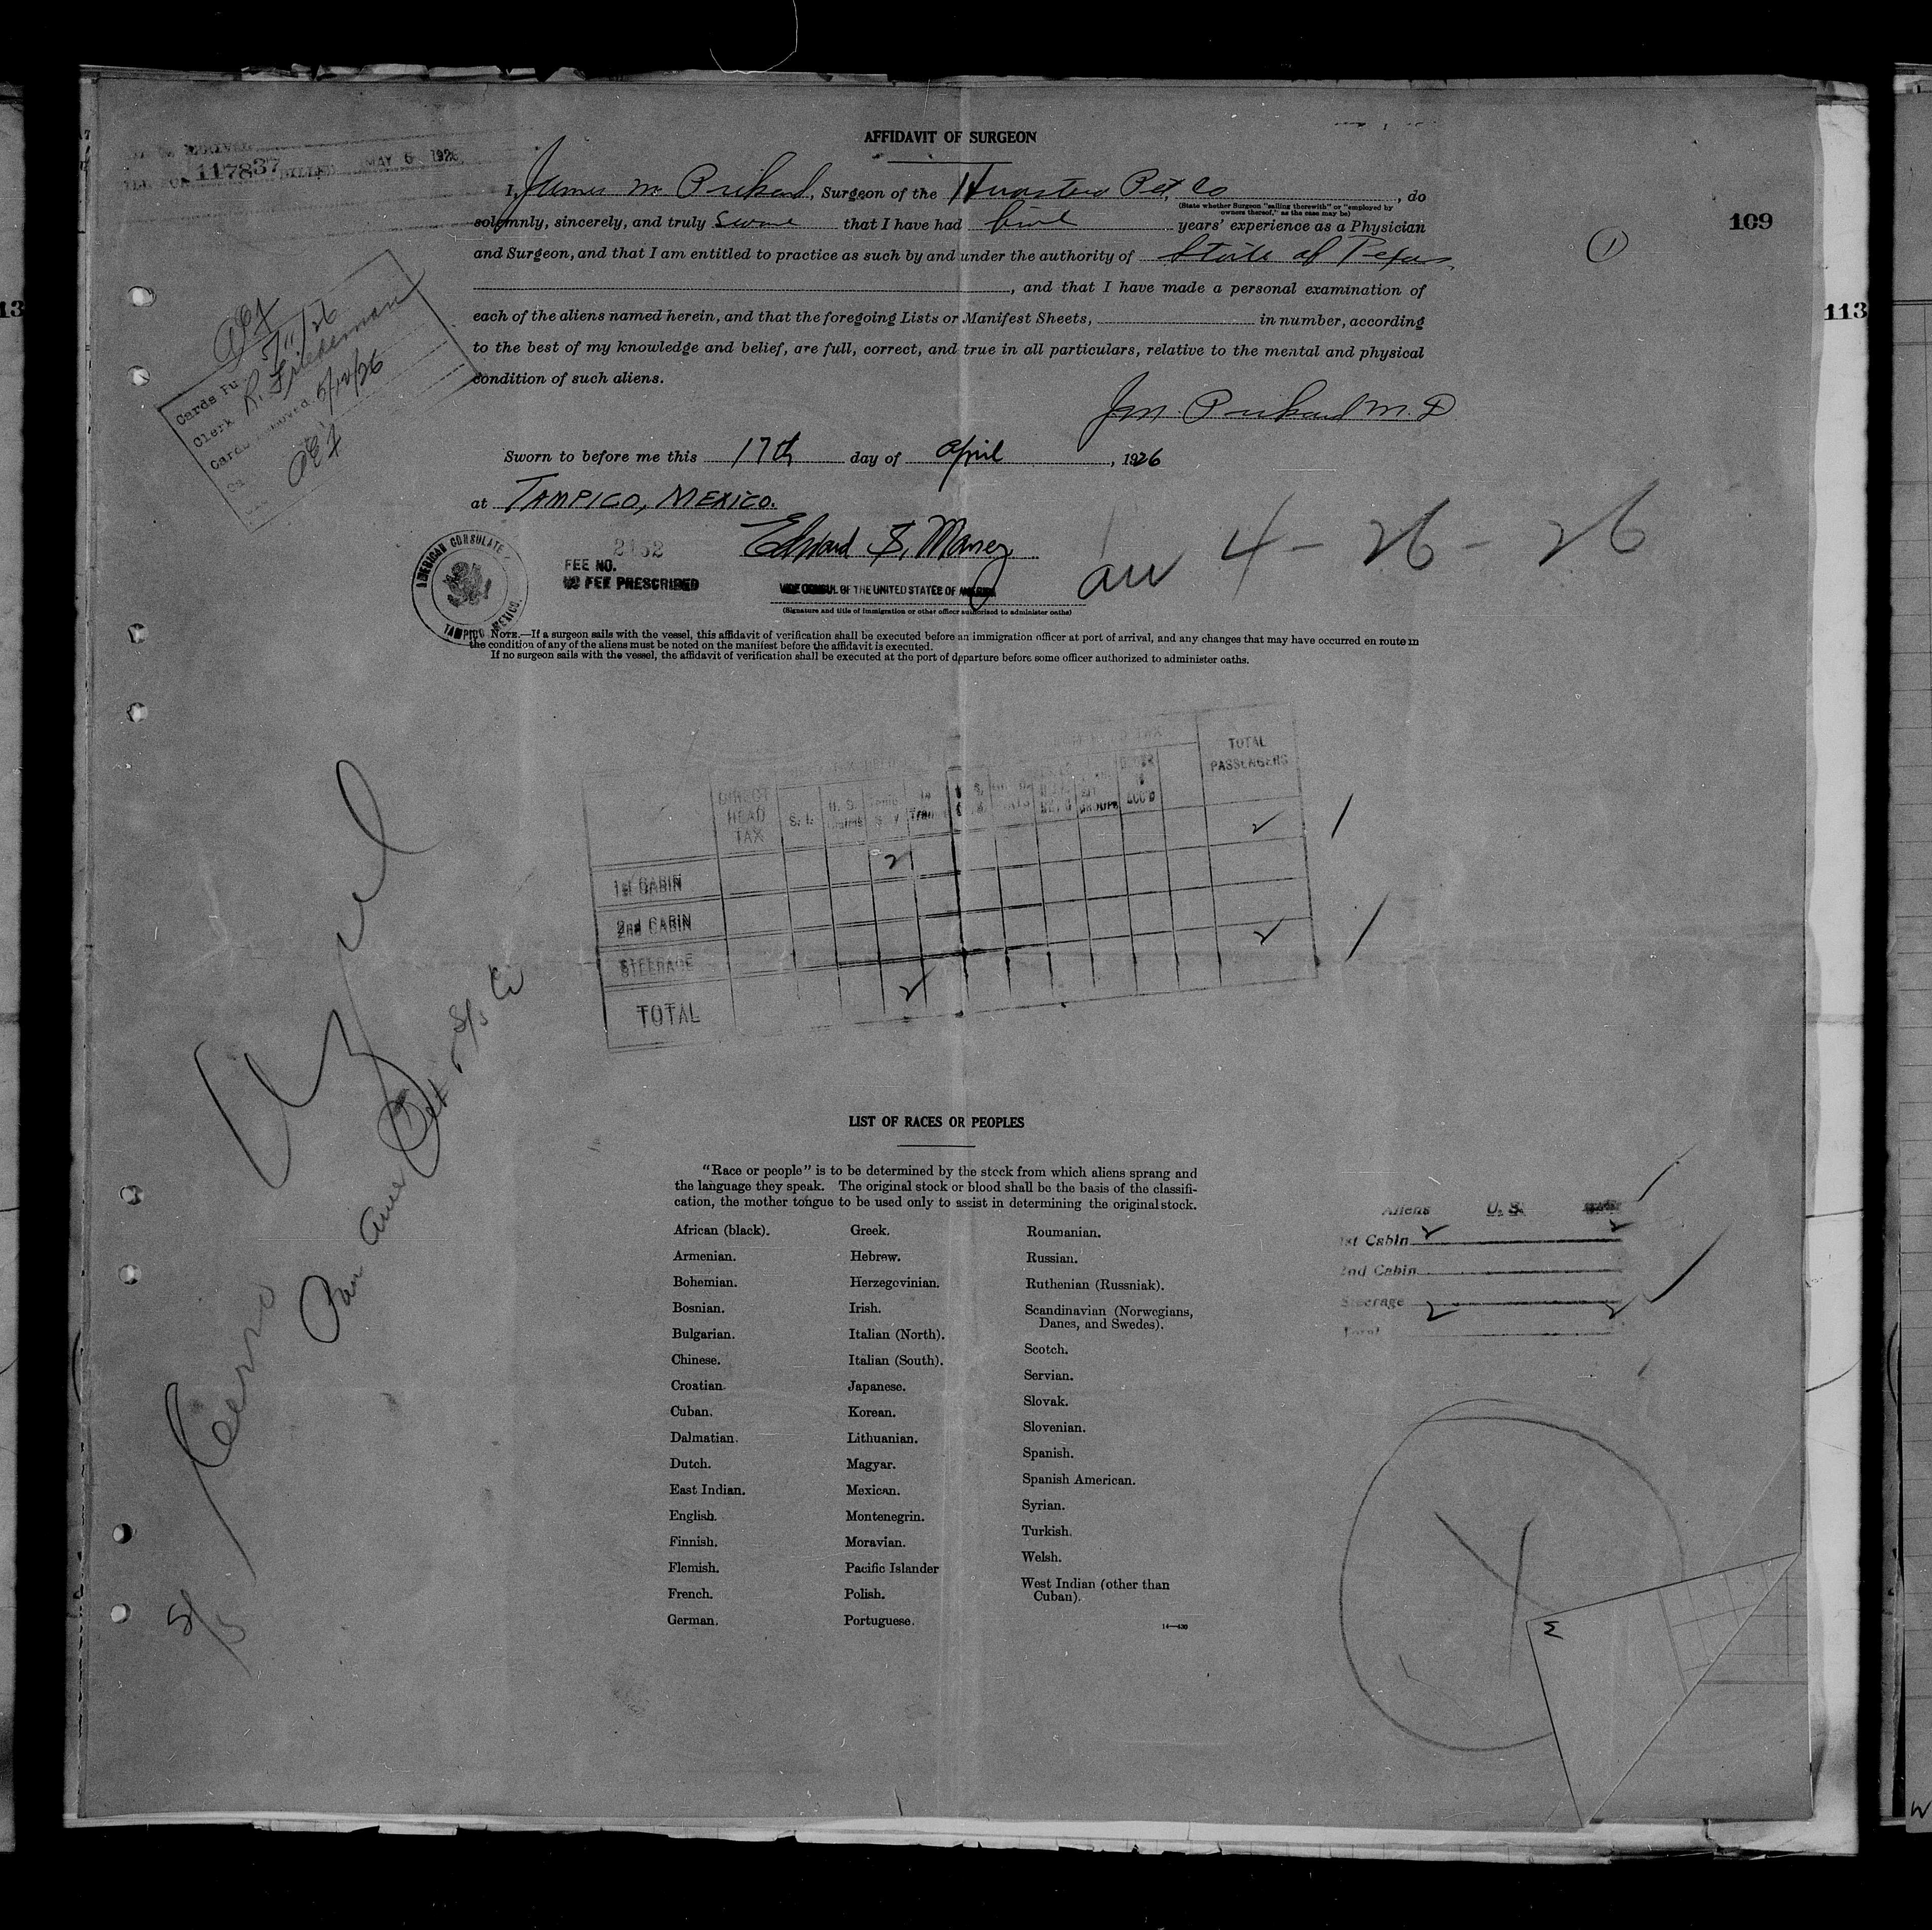 AFFIDAVIT OF SURGEON
117837 BILLED MAY 6 1926
I, James M Prichard, Surgeon of the Huasteca Pet. Co, do
(State whether Surgeon "sailing therewith" or "employed by
owners thereof," as the case may be)
solemnly, sincerely, and truly swear that I have had five years' experience as a Physician
109
and Surgeon, and that I am entitled to practice as such by and under the authority of State of Texas
1
, and that I have made a personal examination of
113
each of the aliens named herein, and that the foregoing Lists or Manifest Sheets, in number, according
to the best of my knowledge and belief, are full, correct, and true in all particulars, relative to the mental and physical
condition of such aliens.
5/11/26
Cards Pu
Clerk R. Friedermann
5/12/26
J.M. Prichard M.D
Sworn to before me this 17th day of April, 1926
at TAMPICO, MEXICO.
Edward S. Maney
arr 4-26-26
AMERICAN CONSULATE
TAMPICO, MEXICO.
2152
FEE NO.
NO FEE PRESCRIBED
VICE CONSUL OF THE UNITED STATES OF AMERICA
(Signature and title of immigration or other officer authorized to administer oaths)
NOTE.—If a surgeon sails with the vessel, this affidavit of verification shall be executed before an immigration officer at port of arrival, and any changes that may have occurred en route in
the condition of any of the aliens must be noted on the manifest before the affidavit is executed.
If no surgeon sails with the vessel, the affidavit of verification shall be executed at the port of departure before some officer authorized to administer oaths.
TOTAL
PASSENGERS
DIRECT
HEAD
TAX
S. I.
U. S.
GROUPS
ACC'D
2
1
1st CABIN
2
2nd CABIN
STEERAGE
2
1
TOTAL
2
S/S Cerro Azul
Pan Amer Pet S/S Co
LIST OF RACES OR PEOPLES
"Race or people" is to be determined by the stock from which aliens sprang and
the language they speak. The original stock or blood shall be the basis of the classifi-
cation, the mother tongue to be used only to assist in determining the original stock.
African (black).
Armenian.
Bohemian.
Bosnian.
Bulgarian.
Chinese.
Croatian.
Cuban.
Dalmatian.
Dutch.
East Indian.
English.
Finnish.
Flemish.
French.
German.
Greek.
Hebrew.
Herzegovinian.
Irish.
Italian (North).
Italian (South).
Japanese.
Korean.
Lithuanian.
Magyar.
Mexican.
Montenegrin.
Moravian.
Pacific Islander
Polish.
Portuguese.
Roumanian.
Russian.
Ruthenian (Russniak).
Scandinavian (Norwegians,
Danes, and Swedes).
Scotch.
Servian.
Slovak.
Slovenian.
Spanish.
Spanish American.
Syrian.
Turkish.
Welsh.
West Indian (other than
Cuban).
14—430
Aliens U. S.
1st Cabin 2 2
2nd Cabin
Steerage
Total 2 2